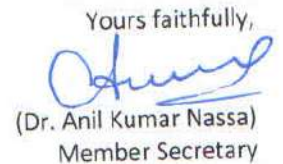 Yours faithfully,
(Dr. Anil Kumar Nassa)
Member Secretary